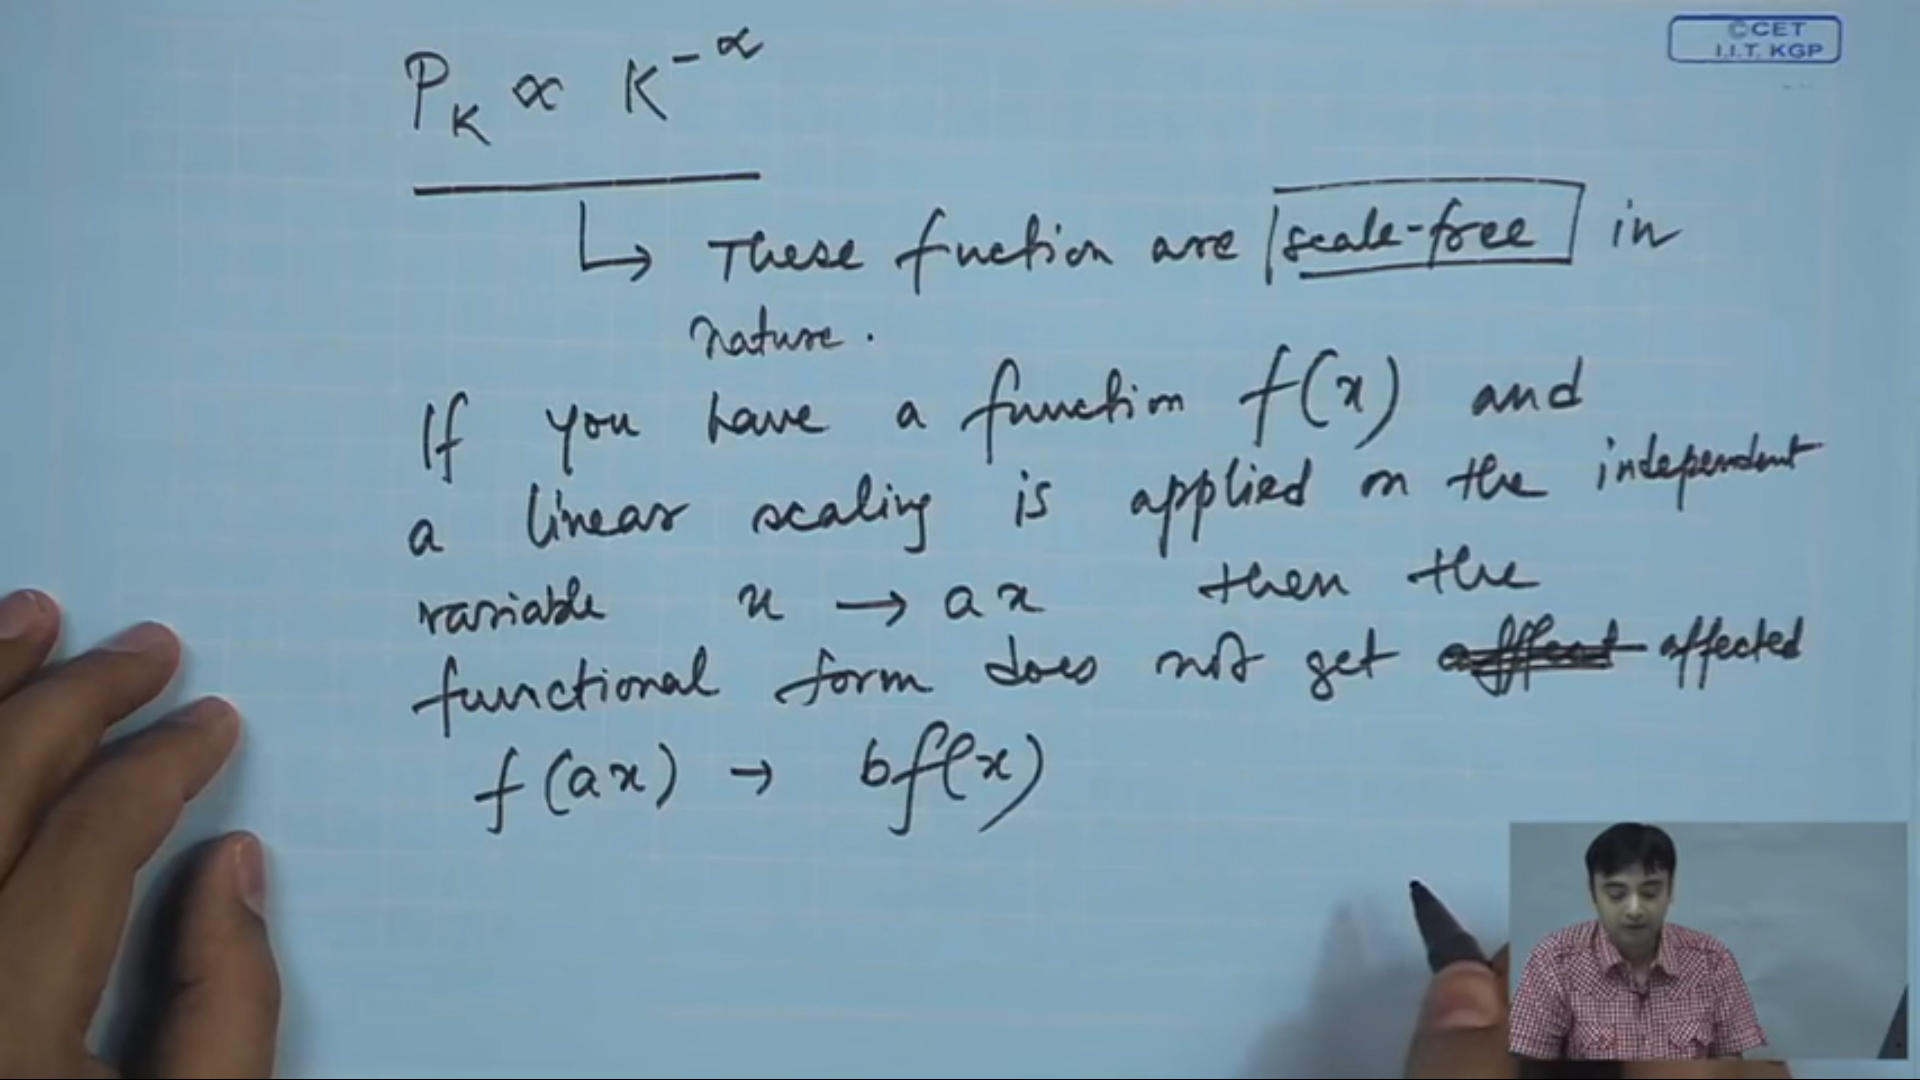 ©CET
I.I.T. KGP
P_K ∝ K^-α
↳ These fuction are scale-free in
nature.
If you have a function f(x) and
a linear scaling is applied on the independent
variable x → ax then the
functional form does not get affect affected
f(ax) → bf(x)